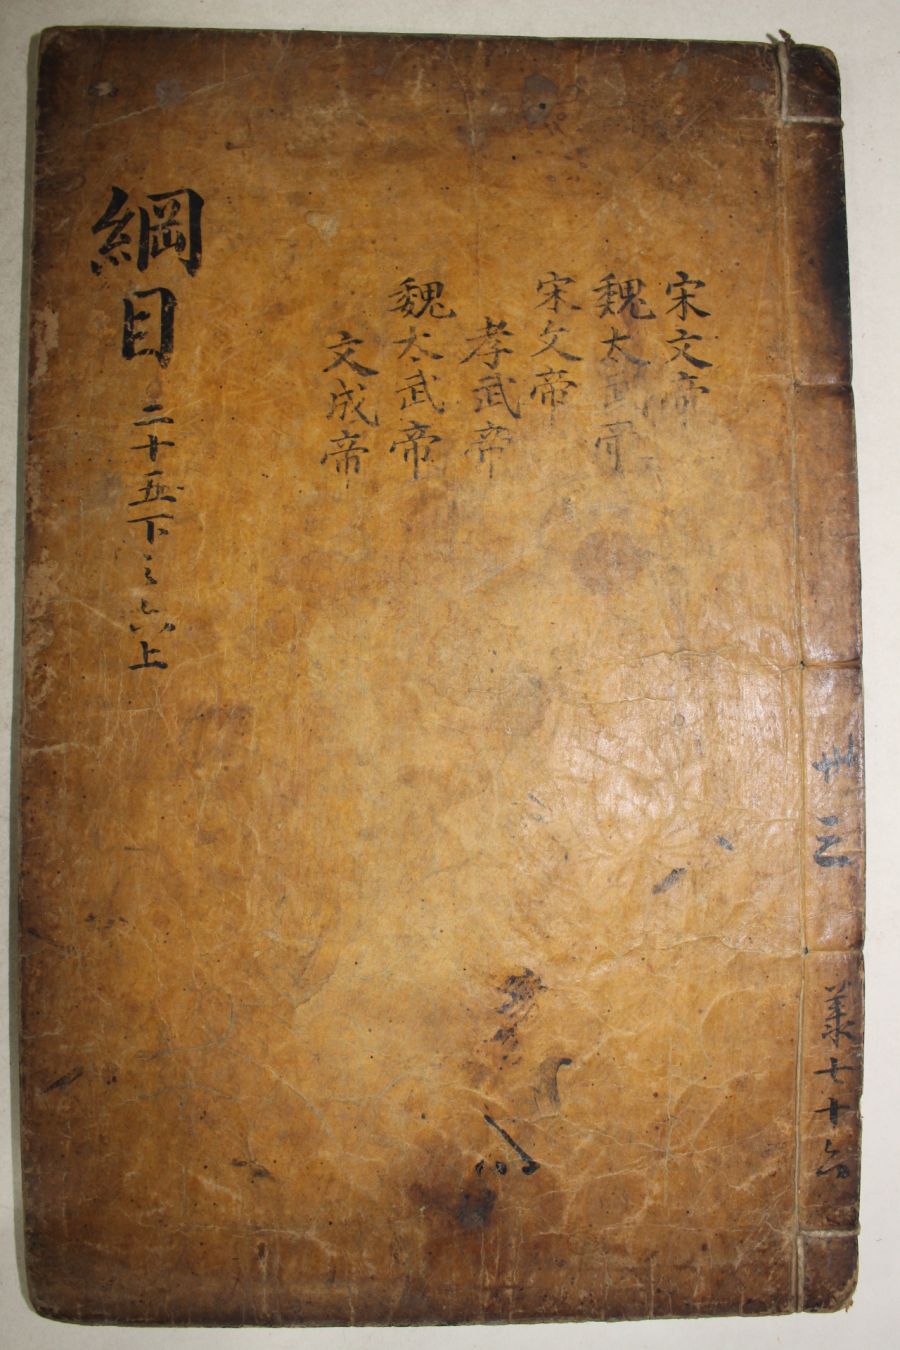 宋文帝
魏太武帝
宋文帝
孝武帝
魏太武帝
文成帝
綱目
二十五下之六上
卄三
共七十六